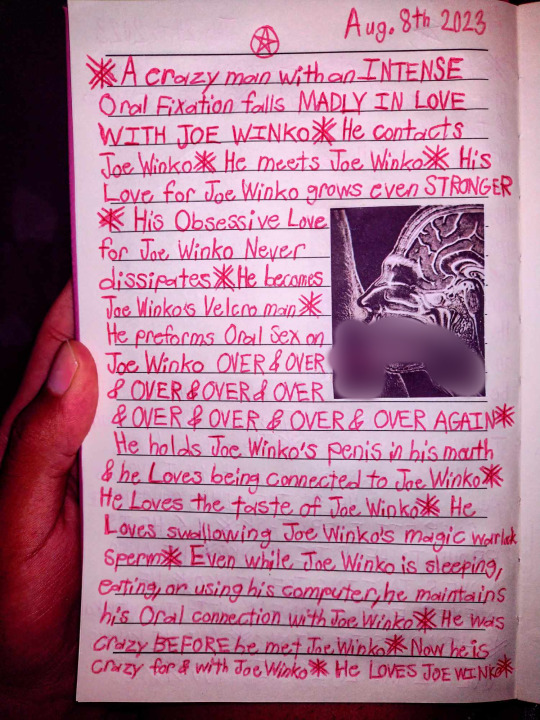 Aug. 8th 2023
A crazy man with an INTENSE
Oral Fixation falls MADLY IN LOVE
WITH JOE WINKO He contacts
Joe Winko He meets Joe Winko His
Love for Joe Winko grows even STRONGER
His Obsessive Love
for Joe Winko Never
dissipates He becomes
Joe Winko's Velcro man
He preforms Oral Sex on
Joe Winko OVER & OVER
& OVER & OVER & OVER
& OVER & OVER & OVER & OVER AGAIN
He holds Joe Winko's penis in his mouth
& he Loves being connected to Joe Winko
He Loves the taste of Joe Winko He
Loves swallowing Joe Winko's magic warlock
sperm Even while Joe Winko is sleeping,
eating, or using his computer, he maintains
his Oral connection with Joe Winko He was
crazy BEFORE he met Joe Winko Now he is
crazy for & with Joe Winko He LOVES JOE WINKO